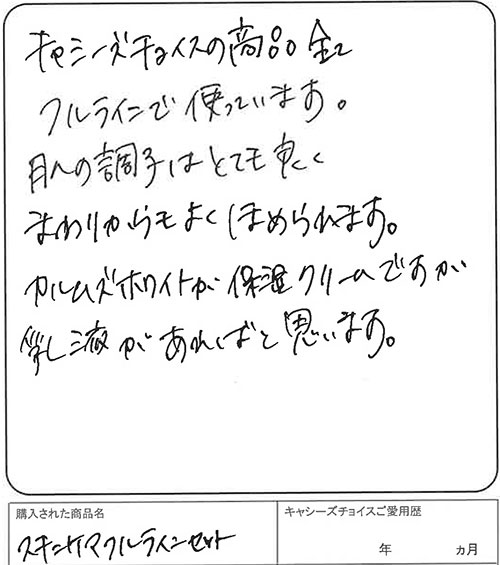 キャシーズチョイスの商品全て
フルラインで使っています。
肌の調子はとても良く
まわりからもよくほめられます。
カルムズホワイトが保湿クリームですが
乳液があればと思います。
購入された商品名
キャシーズチョイスご愛用歴
スキンケアフルラインセット
年 ヵ月